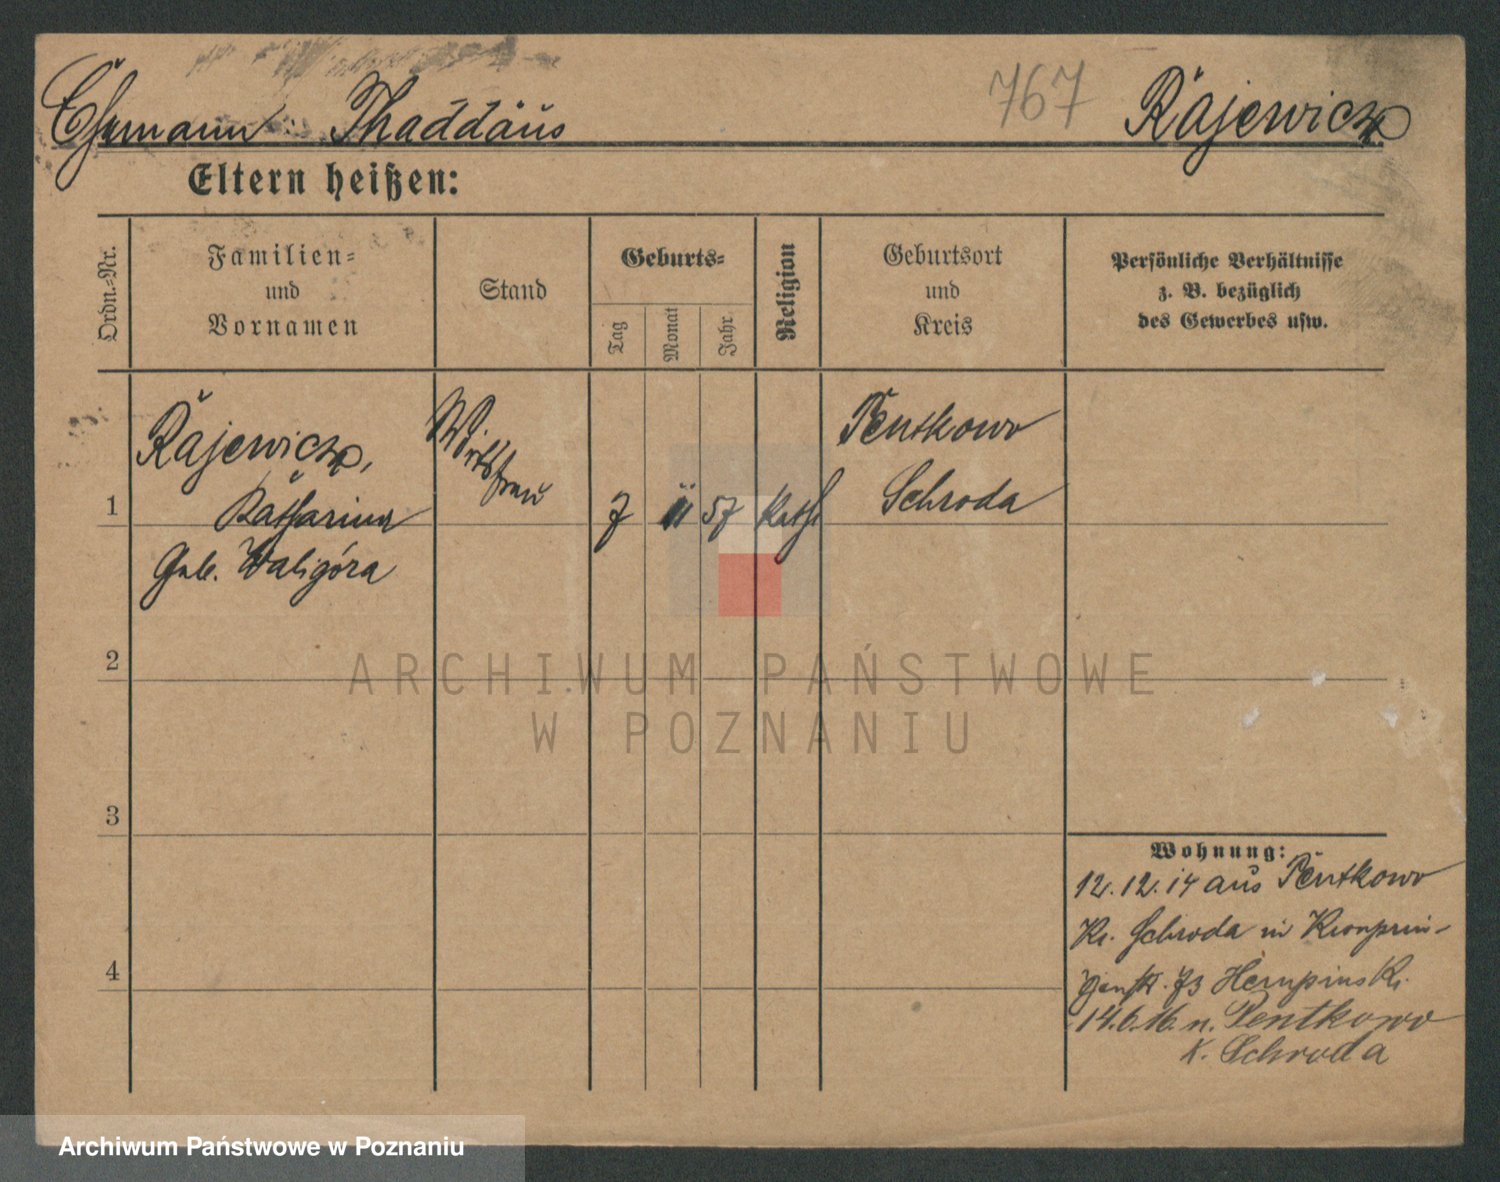 Ehemann Thaddäus 767 Rajewicz
Eltern heißen:
Ordn.-Nr.
Familien-
und
Vornamen
Stand
Geburts-
Tag
Monat
Jahr
Religion
Geburtsort
und
Kreis
Persönliche Verhältnisse
z. B. bezüglich
des Gewerbes usw.
1
Rajewicz,
Katharina
Geb. Waligóra
Wirtsfrau
7 11 57 Kath
Pentkowo
Schroda
2
3
4
Wohnung:
12.12.14 aus Pentkowo
Kr. Schroda in Kronprin-
zenstr. 73
14.6.16 n. Pentkowo
K. Schroda
ARCHIWUM PAŃSTWOWE
W POZNANIU
Archiwum Państwowe w Poznaniu